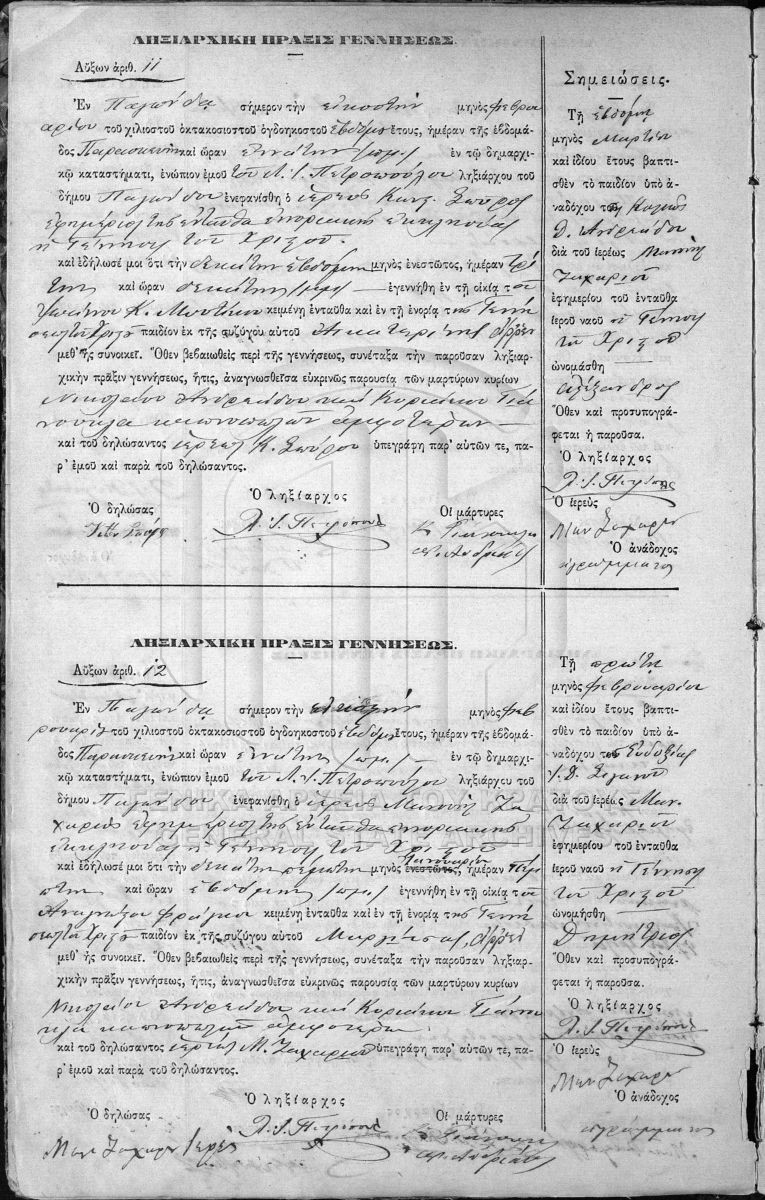 ΛΗΞΙΑΡΧΙΚΗ ΠΡΑΞΙΣ ΓΕΝΝΗΣΕΩΣ.
Αὔξων ἀριθ. 11
Ἐν Παγώνδα σήμερον τὴν εἰκοστὴν μηνὸς φεβρου
αρίου τοῦ χιλιοστοῦ ὀκτακοσιοστοῦ ὀγδοηκοστοῦ ἑβδόμου ἔτους, ἡμέραν τῆς ἑβδομά-
δος Παρασκευὴν καὶ ὥραν ἐννάτην π.μ. ἐν τῷ δημαρχι-
κῷ καταστήματι, ἐνώπιον ἐμοῦ τοῦ Πετροπούλου ληξιάρχου τοῦ
δήμου Παγώνδου ἐνεφανίσθη ὁ ἱερεὺς Κων.
ἐφημέριος τῆς ἐνταῦθα ἐνοριακῆς ἐκκλησίας
ἡ Γέννησις τοῦ Χριστοῦ.
καὶ ἐδήλωσέ μοι ὅτι τὴν δεκάτην ἑβδόμην μηνὸς ἐνεστῶτος, ἡμέραν Τρί
την καὶ ὥραν δεκάτην μμ ἐγεννήθη ἐν τῇ οἰκίᾳ του
Κ. κειμένῃ ἐνταῦθα καὶ ἐν τῇ ἐνορίᾳ τῆς Γενή
σεως τοῦ Χριστοῦ παιδίον ἐκ τῆς συζύγου αὐτοῦ Αἰκατερίνης ἄρρεν
μεθ' ἧς συνοικεῖ. Ὅθεν βεβαιωθεὶς περὶ τῆς γεννήσεως, συνέταξα τὴν παροῦσαν ληξιαρ-
χικὴν πρᾶξιν γεννήσεως, ἥτις, ἀναγνωσθεῖσα εὐκρινῶς παρουσίᾳ τῶν μαρτύρων κυρίων
Νικολάου Ἀνδρεάδου καὶ Κυριάκου Γιά
νουκλα καπνοπωλῶν ἀμφοτέρων
καὶ τοῦ δηλώσαντος ἱερέως Κ. ὑπεγράφη παρ' αὐτῶν τε, πα-
ρ' ἐμοῦ καὶ παρὰ τοῦ δηλώσαντος.
Ὁ δηλώσας
Ὁ ληξίαρχος
Οἱ μάρτυρες
Σημειώσεις.
Τῇ ἑβδόμῃ
μηνὸς Μαρτίου
καὶ ἰδίου ἔτους βαπτι-
σθὲν τὸ παιδίον ὑπὸ ἀ-
ναδόχου τῆς
Δ. Ἀνδρεάδου
διὰ τοῦ ἱερέως
Ζαχαρίου
ἐφημερίου τοῦ ἐνταῦθα
ἱεροῦ ναοῦ ἡ Γέννησις
τοῦ Χριστοῦ
ὠνομάσθη
Ἀλέξανδρος
Ὅθεν καὶ προσυπογρά-
φεται ἡ παροῦσα.
Ὁ ληξίαρχος
Ὁ ἱερεὺς
Μαν Ζαχαρίου
Ὁ ἀνάδοχος
ἀγράμματος
ΛΗΞΙΑΡΧΙΚΗ ΠΡΑΞΙΣ ΓΕΝΝΗΣΕΩΣ.
Αὔξων ἀριθ. 12
Ἐν Παγώνδα σήμερον τὴν εἰκοστὴν μηνὸς φεβ
ρουαρίου τοῦ χιλιοστοῦ ὀκτακοσιοστοῦ ὀγδοηκοστοῦ ἑβδόμου ἔτους, ἡμέραν τῆς ἑβδομά-
δος Παρασκευὴν καὶ ὥραν ἐννάτην π.μ. ἐν τῷ δημαρχι-
κῷ καταστήματι, ἐνώπιον ἐμοῦ τοῦ Πετροπούλου ληξιάρχου τοῦ
δήμου Παγώνδου ἐνεφανίσθη ὁ ἱερεὺς Μανουὴλ Ζα
χαρίου ἐφημέριος τῆς ἐνταῦθα ἐνοριακῆς
ἐκκλησίας ἡ Γέννησις τοῦ Χριστοῦ
καὶ ἐδήλωσέ μοι ὅτι τὴν δεκάτην πέμπτην μηνὸς Ἰανουαρίου ἐνεστῶτος, ἡμέραν Πέμ
πτην καὶ ὥραν ἑβδόμην π.μ. ἐγεννήθη ἐν τῇ οἰκίᾳ του
Φράγκου κειμένῃ ἐνταῦθα καὶ ἐν τῇ ἐνορίᾳ τῆς Γενή
σεως τοῦ Χριστοῦ παιδίον ἐκ τῆς συζύγου αὐτοῦ ἄρρεν
μεθ' ἧς συνοικεῖ. Ὅθεν βεβαιωθεὶς περὶ τῆς γεννήσεως, συνέταξα τὴν παροῦσαν ληξιαρ-
χικὴν πρᾶξιν γεννήσεως, ἥτις, ἀναγνωσθεῖσα εὐκρινῶς παρουσίᾳ τῶν μαρτύρων κυρίων
Νικολάου Ἀνδρεάδου καὶ Κυριάκου Γιάνου
κλα καπνοπωλῶν ἀμφοτέρων
καὶ τοῦ δηλώσαντος ἱερέως Μ. Ζαχαρίου ὑπεγράφη παρ' αὐτῶν τε, πα-
ρ' ἐμοῦ καὶ παρὰ τοῦ δηλώσαντος.
Ὁ δηλώσας
Μαν Ζαχαρίου Ἱερεύς
Ὁ ληξίαρχος
Οἱ μάρτυρες
Τῇ πρώτῃ
μηνὸς φεβρουαρίου
καὶ ἰδίου ἔτους βαπτι-
σθὲν τὸ παιδίον ὑπὸ ἀ-
ναδόχου τῆς Εὐδοξίας
διὰ τοῦ ἱερέως Μαν.
Ζαχαρίου
ἐφημερίου τοῦ ἐνταῦθα
ἱεροῦ ναοῦ ἡ Γέννησις
τοῦ Χριστοῦ
ὠνομάσθη
Δημήτριος
Ὅθεν καὶ προσυπογρά-
φεται ἡ παροῦσα.
Ὁ ληξίαρχος
Ὁ ἱερεὺς
Μαν Ζαχαρίου
Ὁ ἀνάδοχος
ἀγράμματος